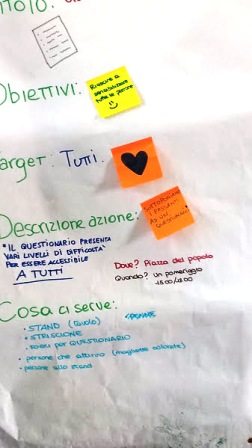 Obiettivi:
Riuscire a
sensibilizzare
tutte le persone
Target: Tutti
Descrizione azione:
SOTTOPORRE
I PASSANTI
AD UN
QUESTIONARIO
"IL QUESTIONARIO PRESENTA
VARI LIVELLI DI DIFFICOLTA'
PER ESSERE ACCESSIBILE
A TUTTI
Dove? Piazza del popolo
Quando? un pomeriggio
Cosa ci serve:
· STAND (tavolo)
· STRISCIONE
· FOGLI per QUESTIONARIO
· persone che attirino (magliette colorate)
· persone allo stand